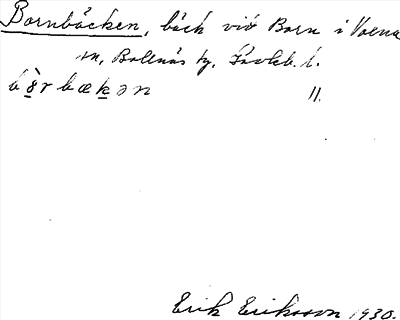 Bornbäcken, bäck vid Born i Voxna
sn, Bollnäs tg, Gävleb. l.
bo̠̊̀rbæk̠ən ll.
Erik Eriksson 1930.